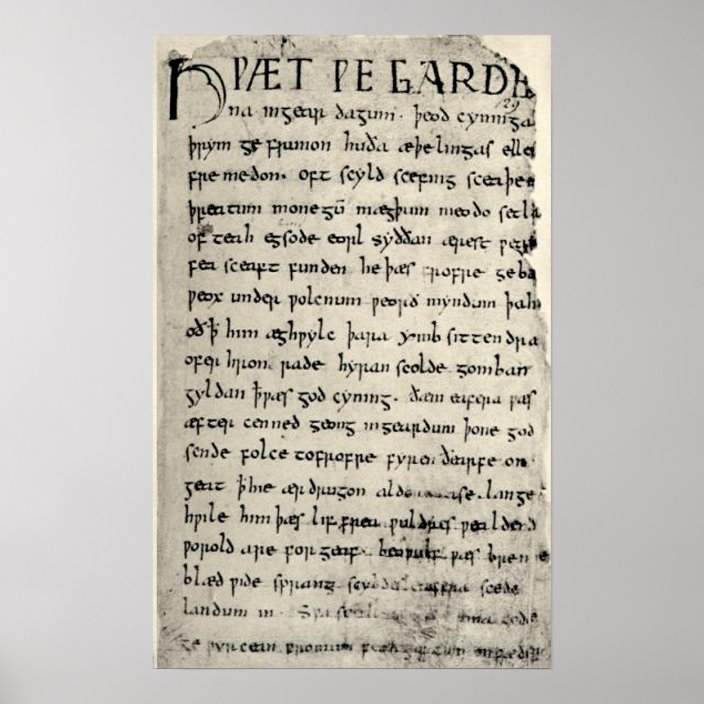 HǷÆT ǷE GARDE
129
na ingear dagum. þeod cyninga
þrym ge frunon huða æþelingas elle
fremedon. oft scyld scefing sceaþe
þreatum monegū mægþum meodo setla
of teah egsode eorl syððan ærest ƿear
fea sceaft funden he þæs frofre geba
ƿeox under ƿolcnum ƿeorð myndum þah
oð ꝥ him æghƿylc þara ymb sittendra
ofer hron rade hyran scolde gomban
gyldan ꝥ ƿæs god cyning. ðæm eafera ƿæs
æfter cenned geong ingeardum þone god
sende folce tofrofre fyren ðearfe on
geat ꝥ hie ær drugon lange
hƿile him þæs lif frea ƿuldres ƿealdend
ƿorold are for geaf. beoƿulf ƿæs breme
blæd ƿide sprang scyldes eafera scede
landum in. Sƿa gode
ge ƿyrcean fromum